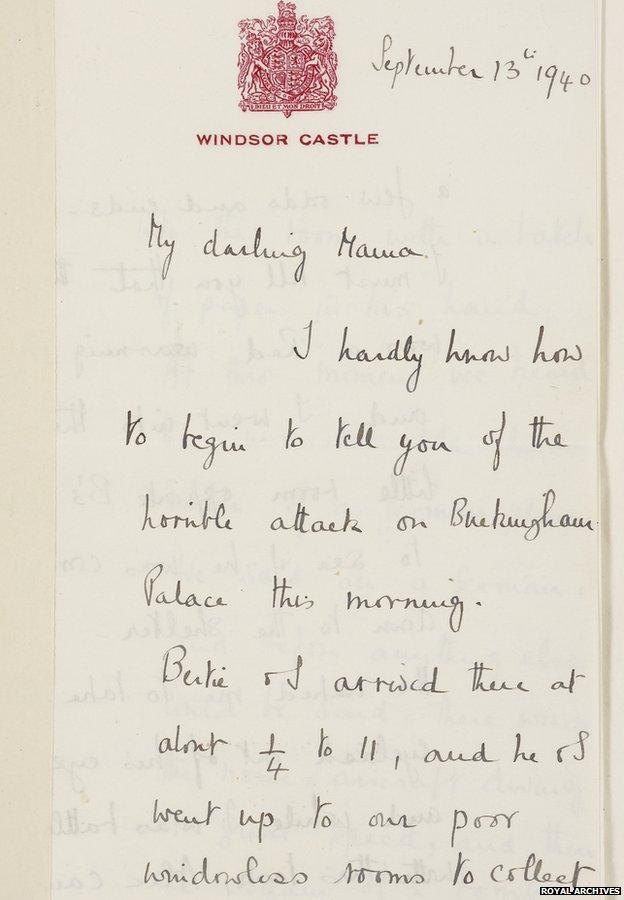 DIEU ET MON DROIT
September 13th 1940
WINDSOR CASTLE
My darling Mama.
I hardly know how
to begin to tell you of the
horrible attack on Buckingham
Palace this morning.
Bertie & I arrived there at
about 1/4 to 11, and he & I
went up to our poor
windowless rooms to collect
ROYAL ARCHIVES